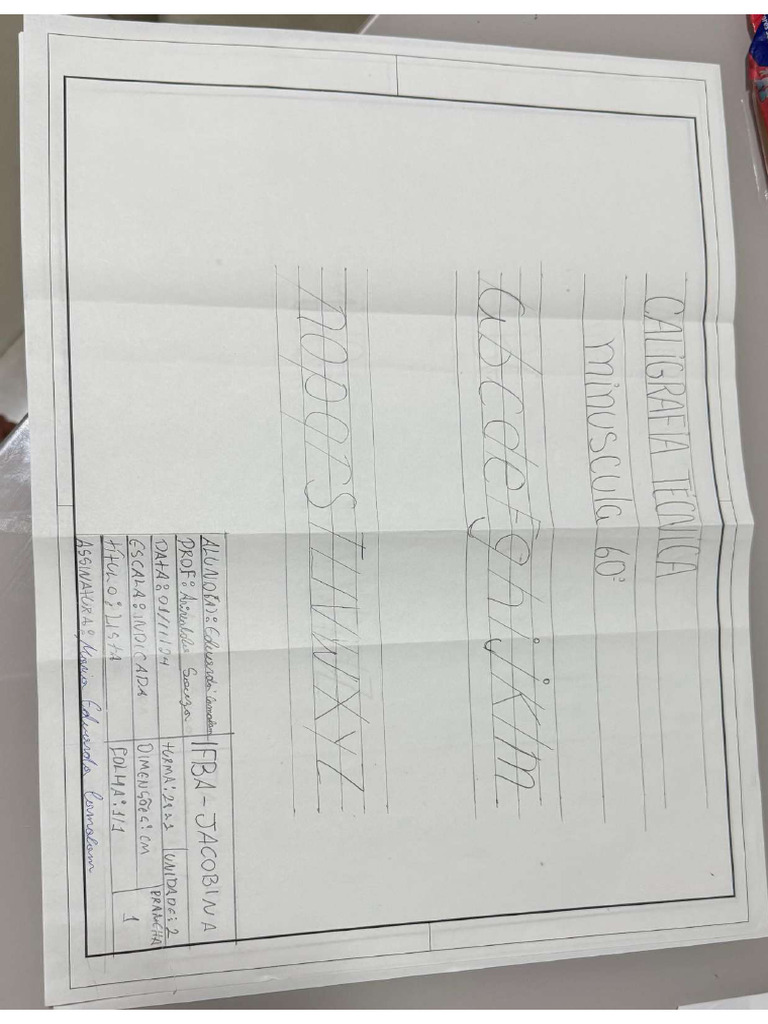 CALIGRAFIA TÉCNICA
minuscula 60°
abcdefghijklm
nopqrstuvwxyz
ALUNO(A): Eduarda Camolam IFBA - JACOBINA
PROF: Souza TURMA: 2921 UNIDADE: 2
DATA: 01/11/24
ESCALA: INDICADA DIMENÇÕES: CM PRANCHA
TÍTULO: LISTA FOLHA: 1/1 1
ASSINATURA: Maria Eduarda Camolam